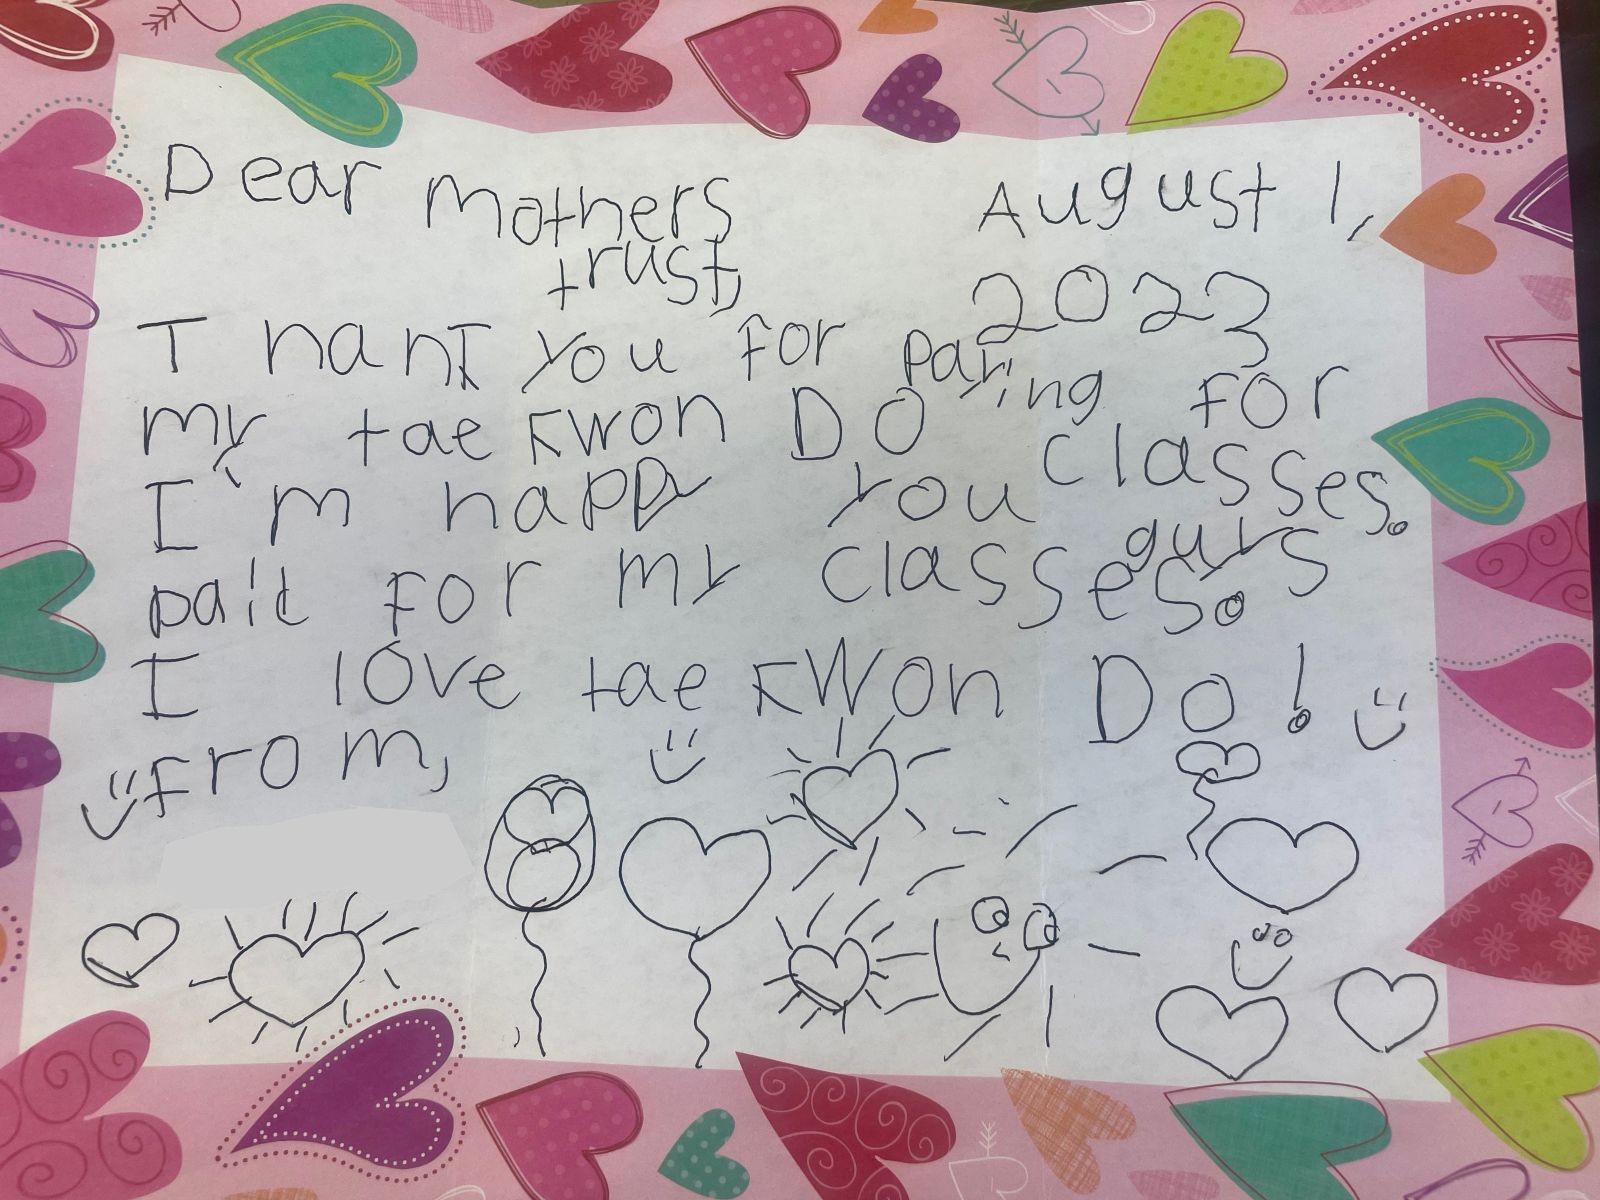 Dear mothers trust,
August 1, 2023
Thank you for paying for
my tae kwon Do classes.
I'm happy you guys
paid for my classes.
I love tae kwon Do!
From,